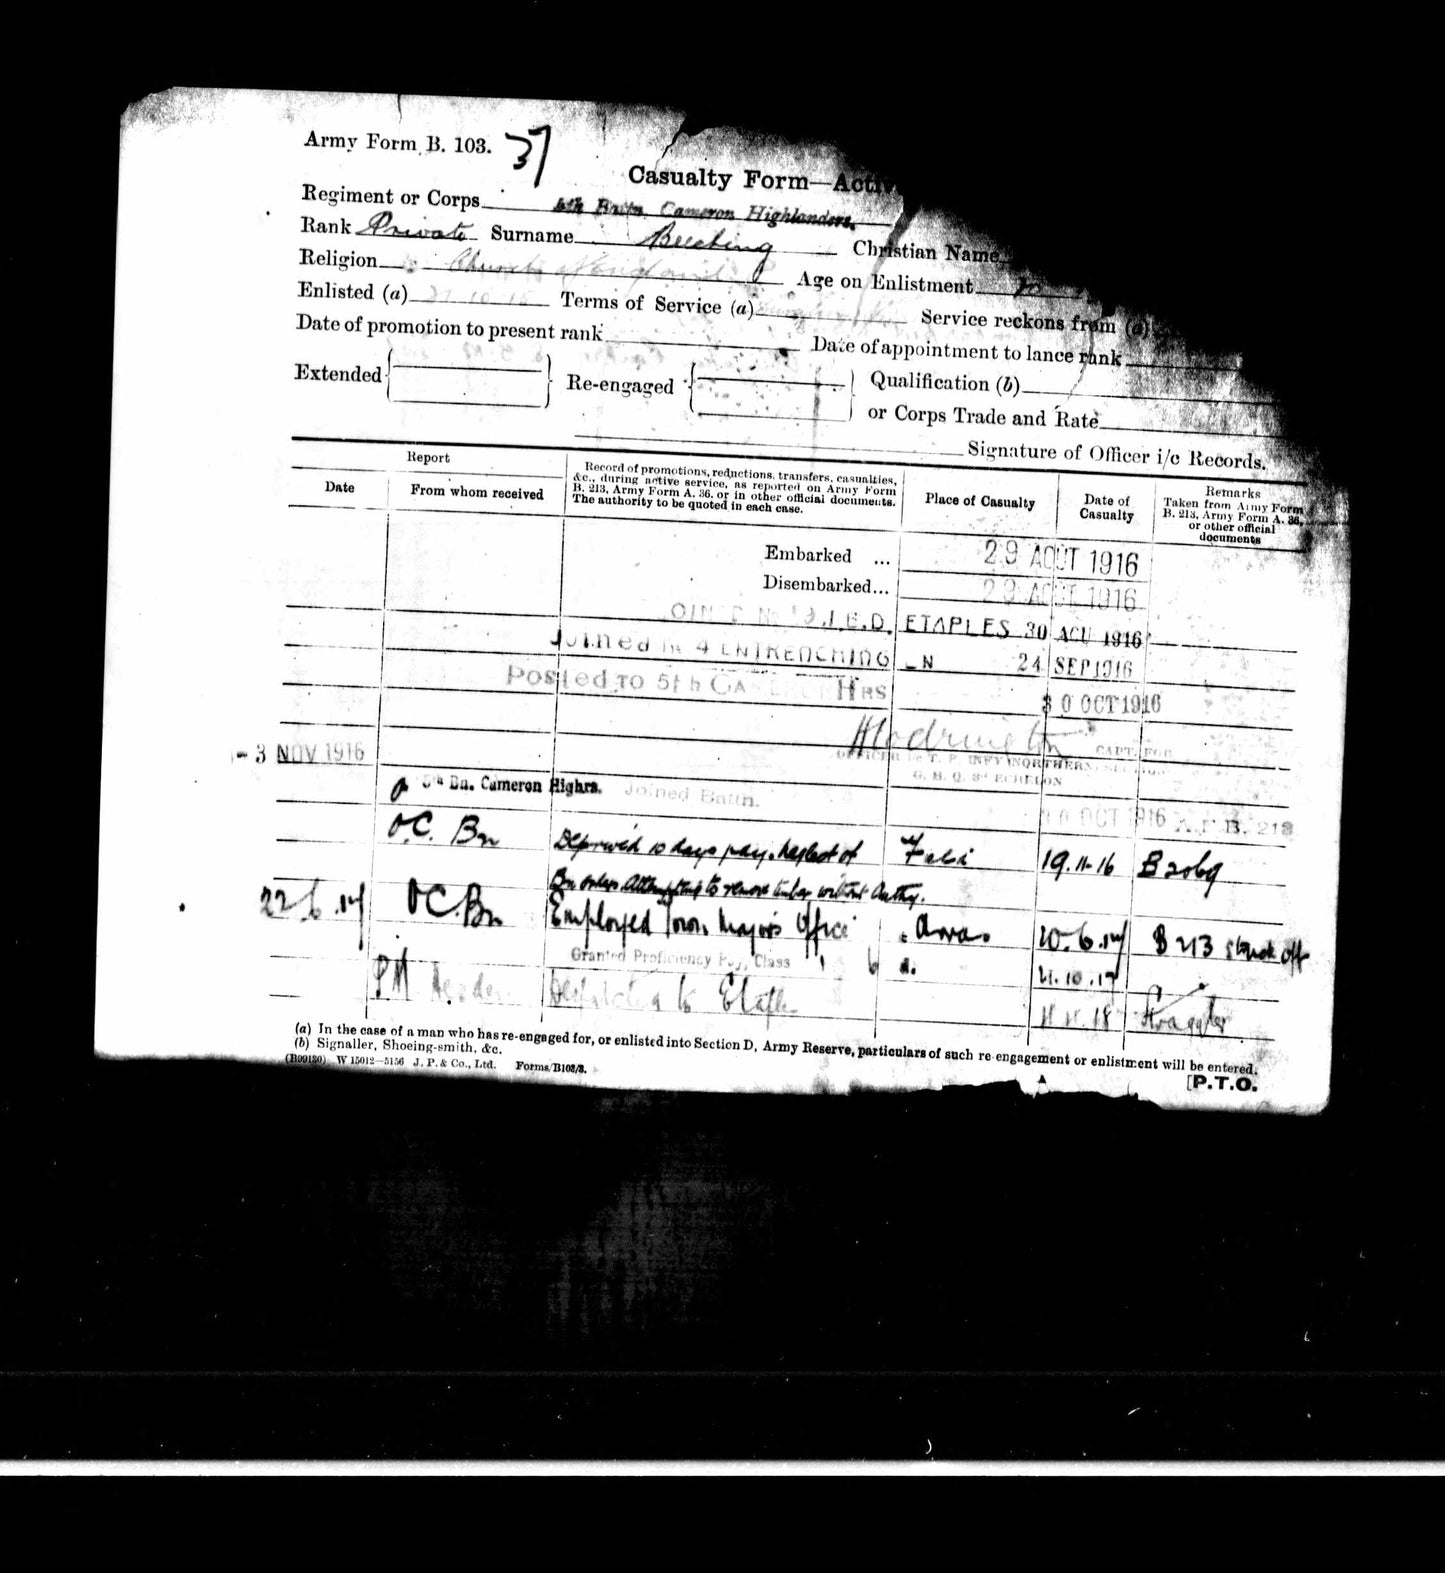 Army Form B. 103. 37
Casualty Form—Active
Regiment or Corps Battn. Cameron Highlanders.
Rank Private Surname Beeching Christian Name
Religion Church of England Age on Enlistment
Enlisted (a) Terms of Service (a) Service reckons from (a)
Date of promotion to present rank Date of appointment to lance rank
Extended Re-engaged Qualification (b)
or Corps Trade and Rate
Signature of Officer i/c Records.
Report
Date
From whom received
Record of promotions, reductions, transfers, casualties,
&c., during active service, as reported on Army Form
B. 213, Army Form A. 36, or in other official documents.
The authority to be quoted in each case.
Place of Casualty
Date of
Casualty
Remarks
Taken from Army Form
B. 213, Army Form A. 36,
or other official
documents
Embarked ... 29 AOUT 1916
Disembarked... 29 AOUT 1916
I.B.D. ETAPLES 30 AOU 1916
Joined 4 ENTRENCHING N 24 SEP 1916
Posted TO 5th HRS 30 OCT 1916
CAPT. FOR
OFFICER T. F. INFY NORTHERN
G. H. Q. 3rd ECHELON
- 3 NOV 1916
5th Bn. Cameron Highrs. Joined Battn. OCT 1916 A.F.B. 213
OC. Bn Deprived 10 days pay. neglect of 19.11.16 B2069
Bn orders Attempting to remove timber without Authy.
22.6.17 OC. Bn Employed Town Majors Office Arras 20.6.17 B 213 Struck off
Granted Proficiency Pay, Class
Despatched to Etaples Straggler
(a) In the case of a man who has re-engaged for, or enlisted into Section D, Army Reserve, particulars of such re-engagement or enlistment will be entered.
(b) Signaller, Shoeing-smith, &c.
W 15012—5156 J. P. & Co., Ltd. Forms/B103/3.
[P.T.O.